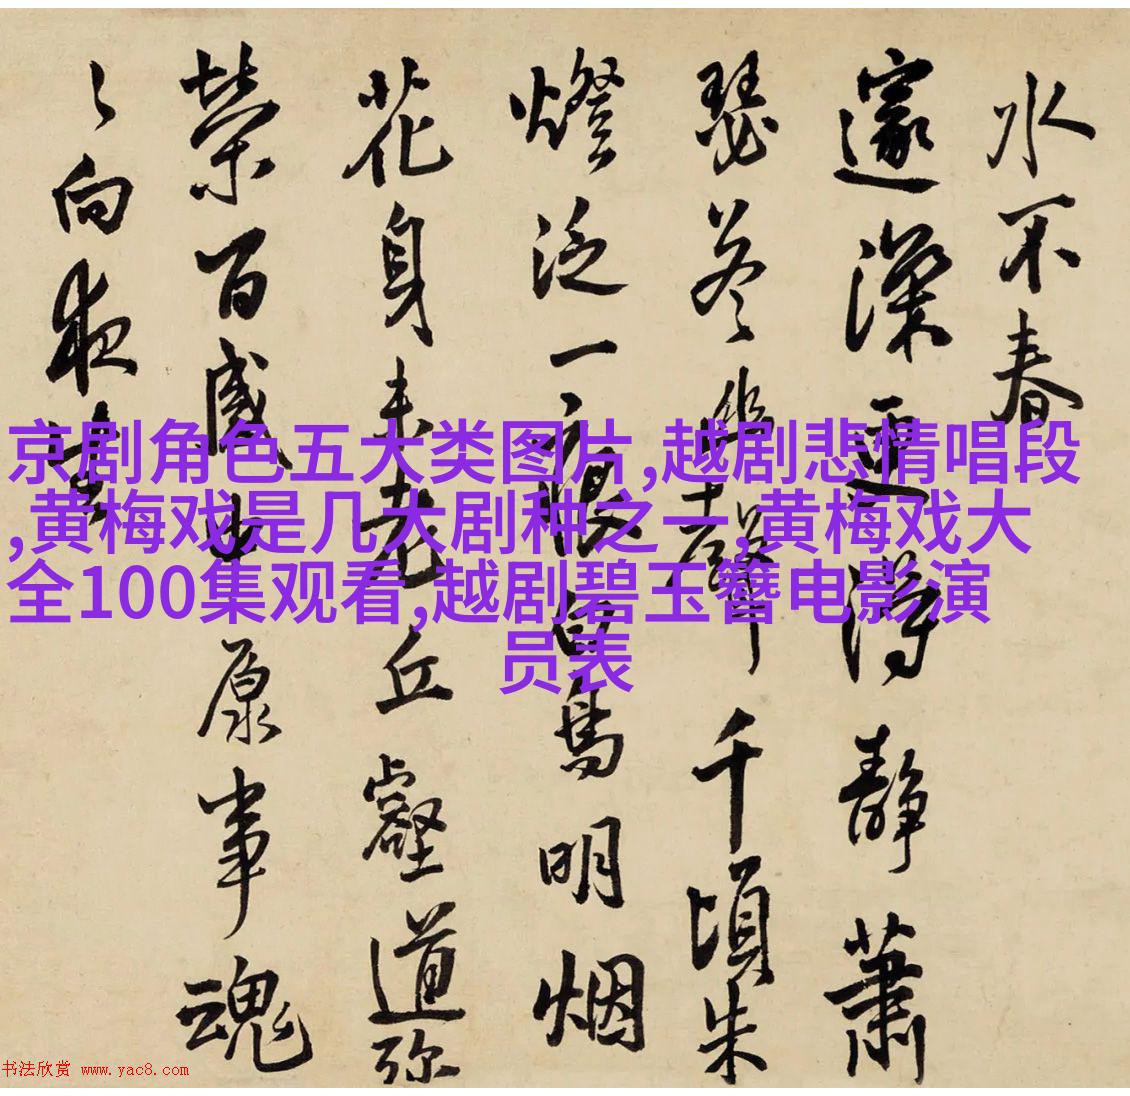 京剧角色五大类图片,越剧悲情唱段
,黄梅戏是几大剧种之一,黄梅戏大
全100集观看,越剧碧玉簪电影演
员表
水不春
邃深更得静蕭
瑟聲千頃朱
燈泛一痕白鳥明烟
花身未老丘壑道弥
榮百感中原事魂
向夜
书法欣赏 www.yac8.com